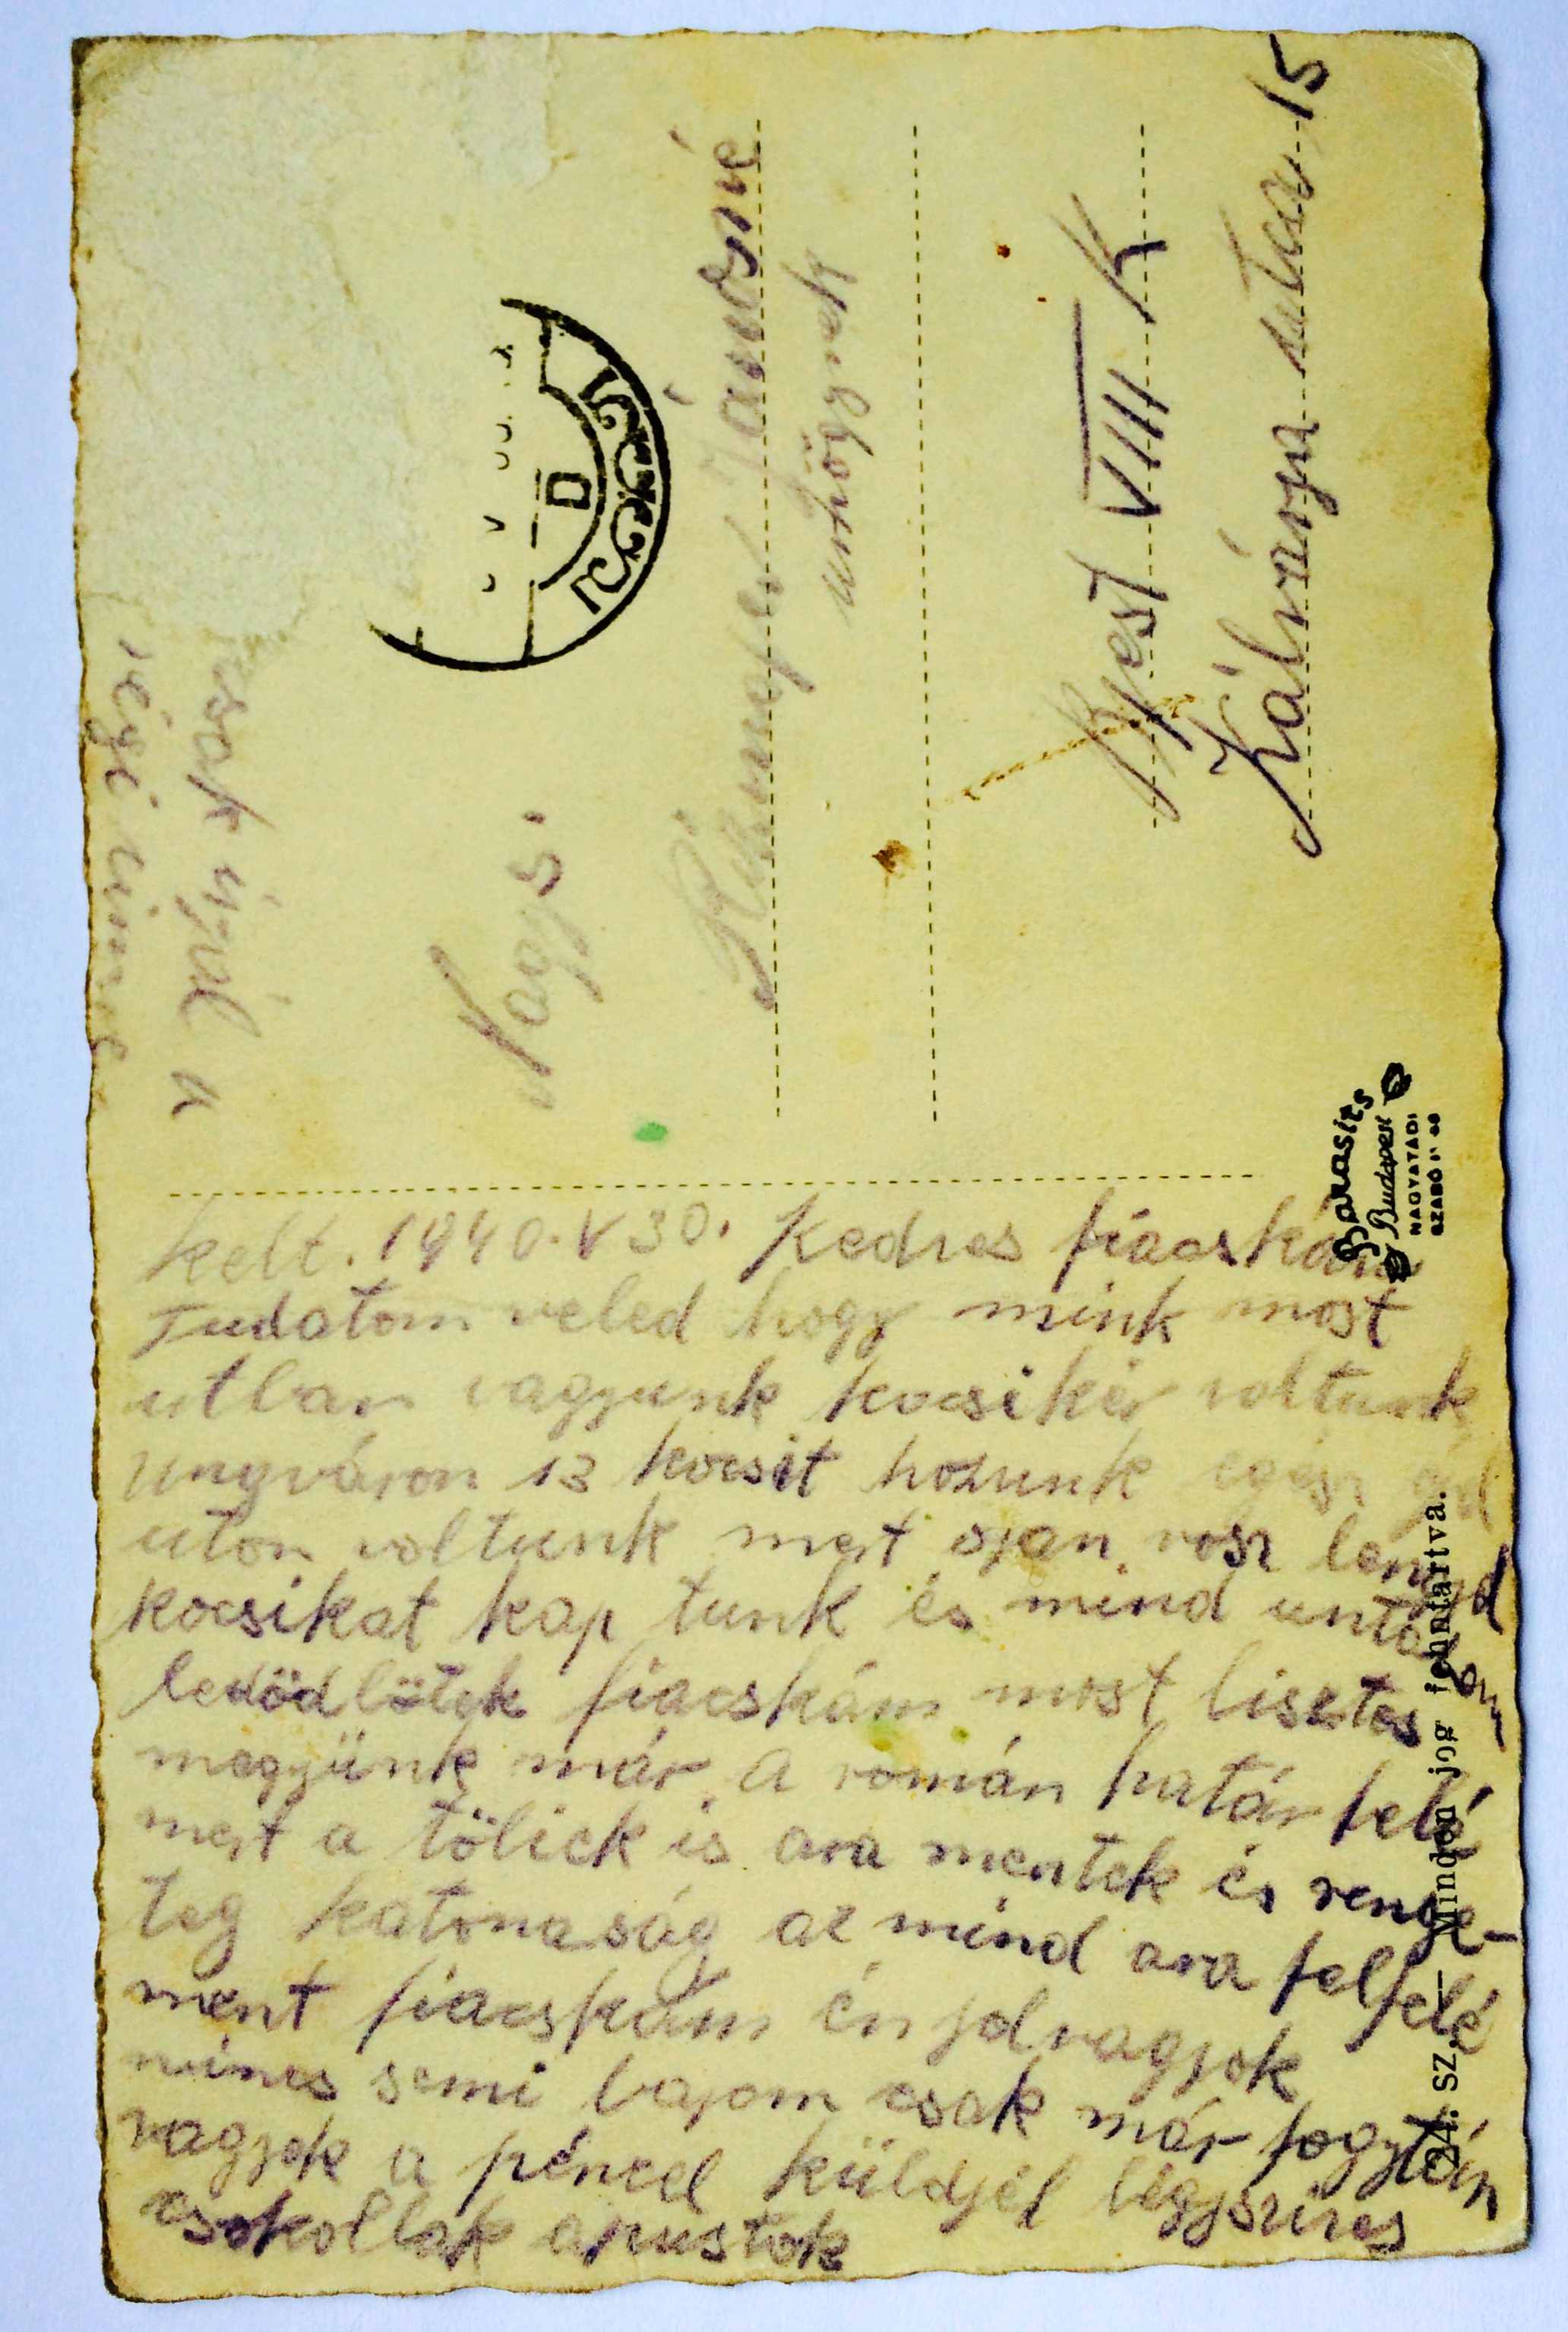 kelt. 1940. V 30. Kedves fiacskám
Tudatom veled hogy mink most
utban vagyunk kocsikér voltunk
Ungváron 13 kocsit hozunk egész
uton voltunk mert ojan rosz lengyel
kocsikat kap tunk és mind untalan
ledödlötek fiacskám most lisztes
megyünk már a román határ felé
mert a töliek is ara mentek és renge-
teg katonaság az mind ara felfelé
ment fiacskám én jolvagyok
nincs semi bajom csak már fogytán
vagyok a pénzel küldjél légyszives
csokollak apustok
csak írjál a
régi címre
Nagys.
Jánosné
unhögynak
Bpest VIII K
Kálvárja utca 15
D
Barasits
Budapest
NAGYATÁDI
SZABÓ U 46
24. sz. — Minden jog fenntartva.